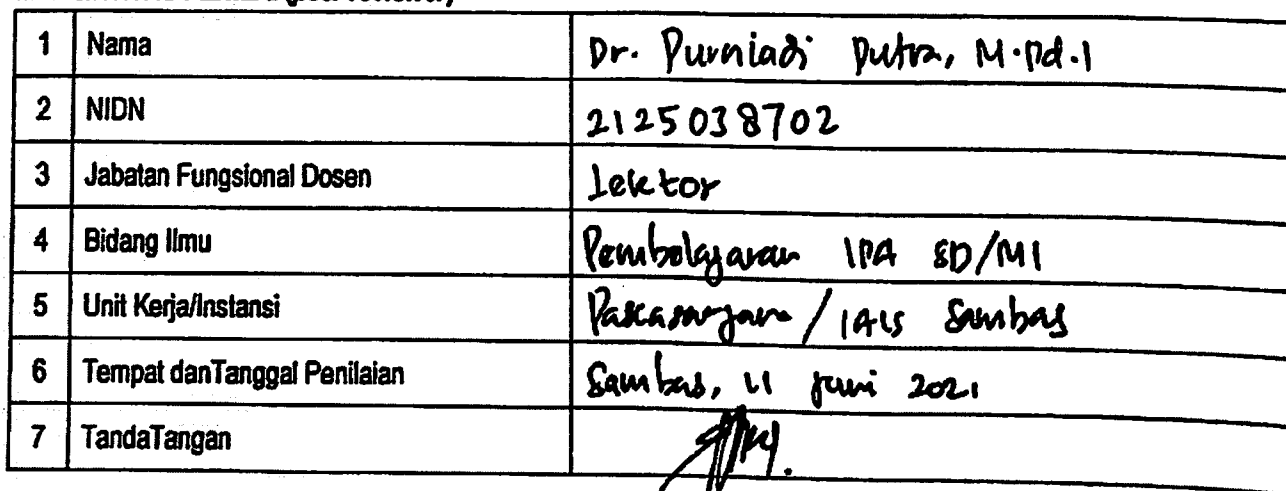 1 Nama Dr. Purniadi Putra, M.Pd.I
2 NIDN 2125038702
3 Jabatan Fungsional Dosen Lektor
4 Bidang Ilmu Pembelajaran IPA SD/MI
5 Unit Kerja/Instansi Pascasarjana / IAIS Sambas
6 Tempat danTanggal Penilaian Sambas, 11 Juni 2021
7 TandaTangan